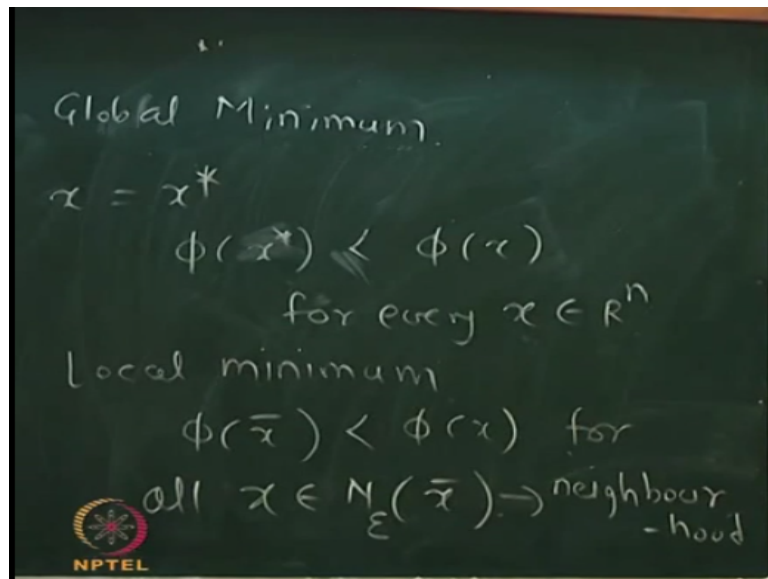 Global Minimum.
x = x*
ϕ(x*) < ϕ(x)
for every x ∈ Rⁿ
Local minimum
ϕ(x̄) < ϕ(x) for
all x ∈ N_ε(x̄) → neighbour
-hood
NPTEL